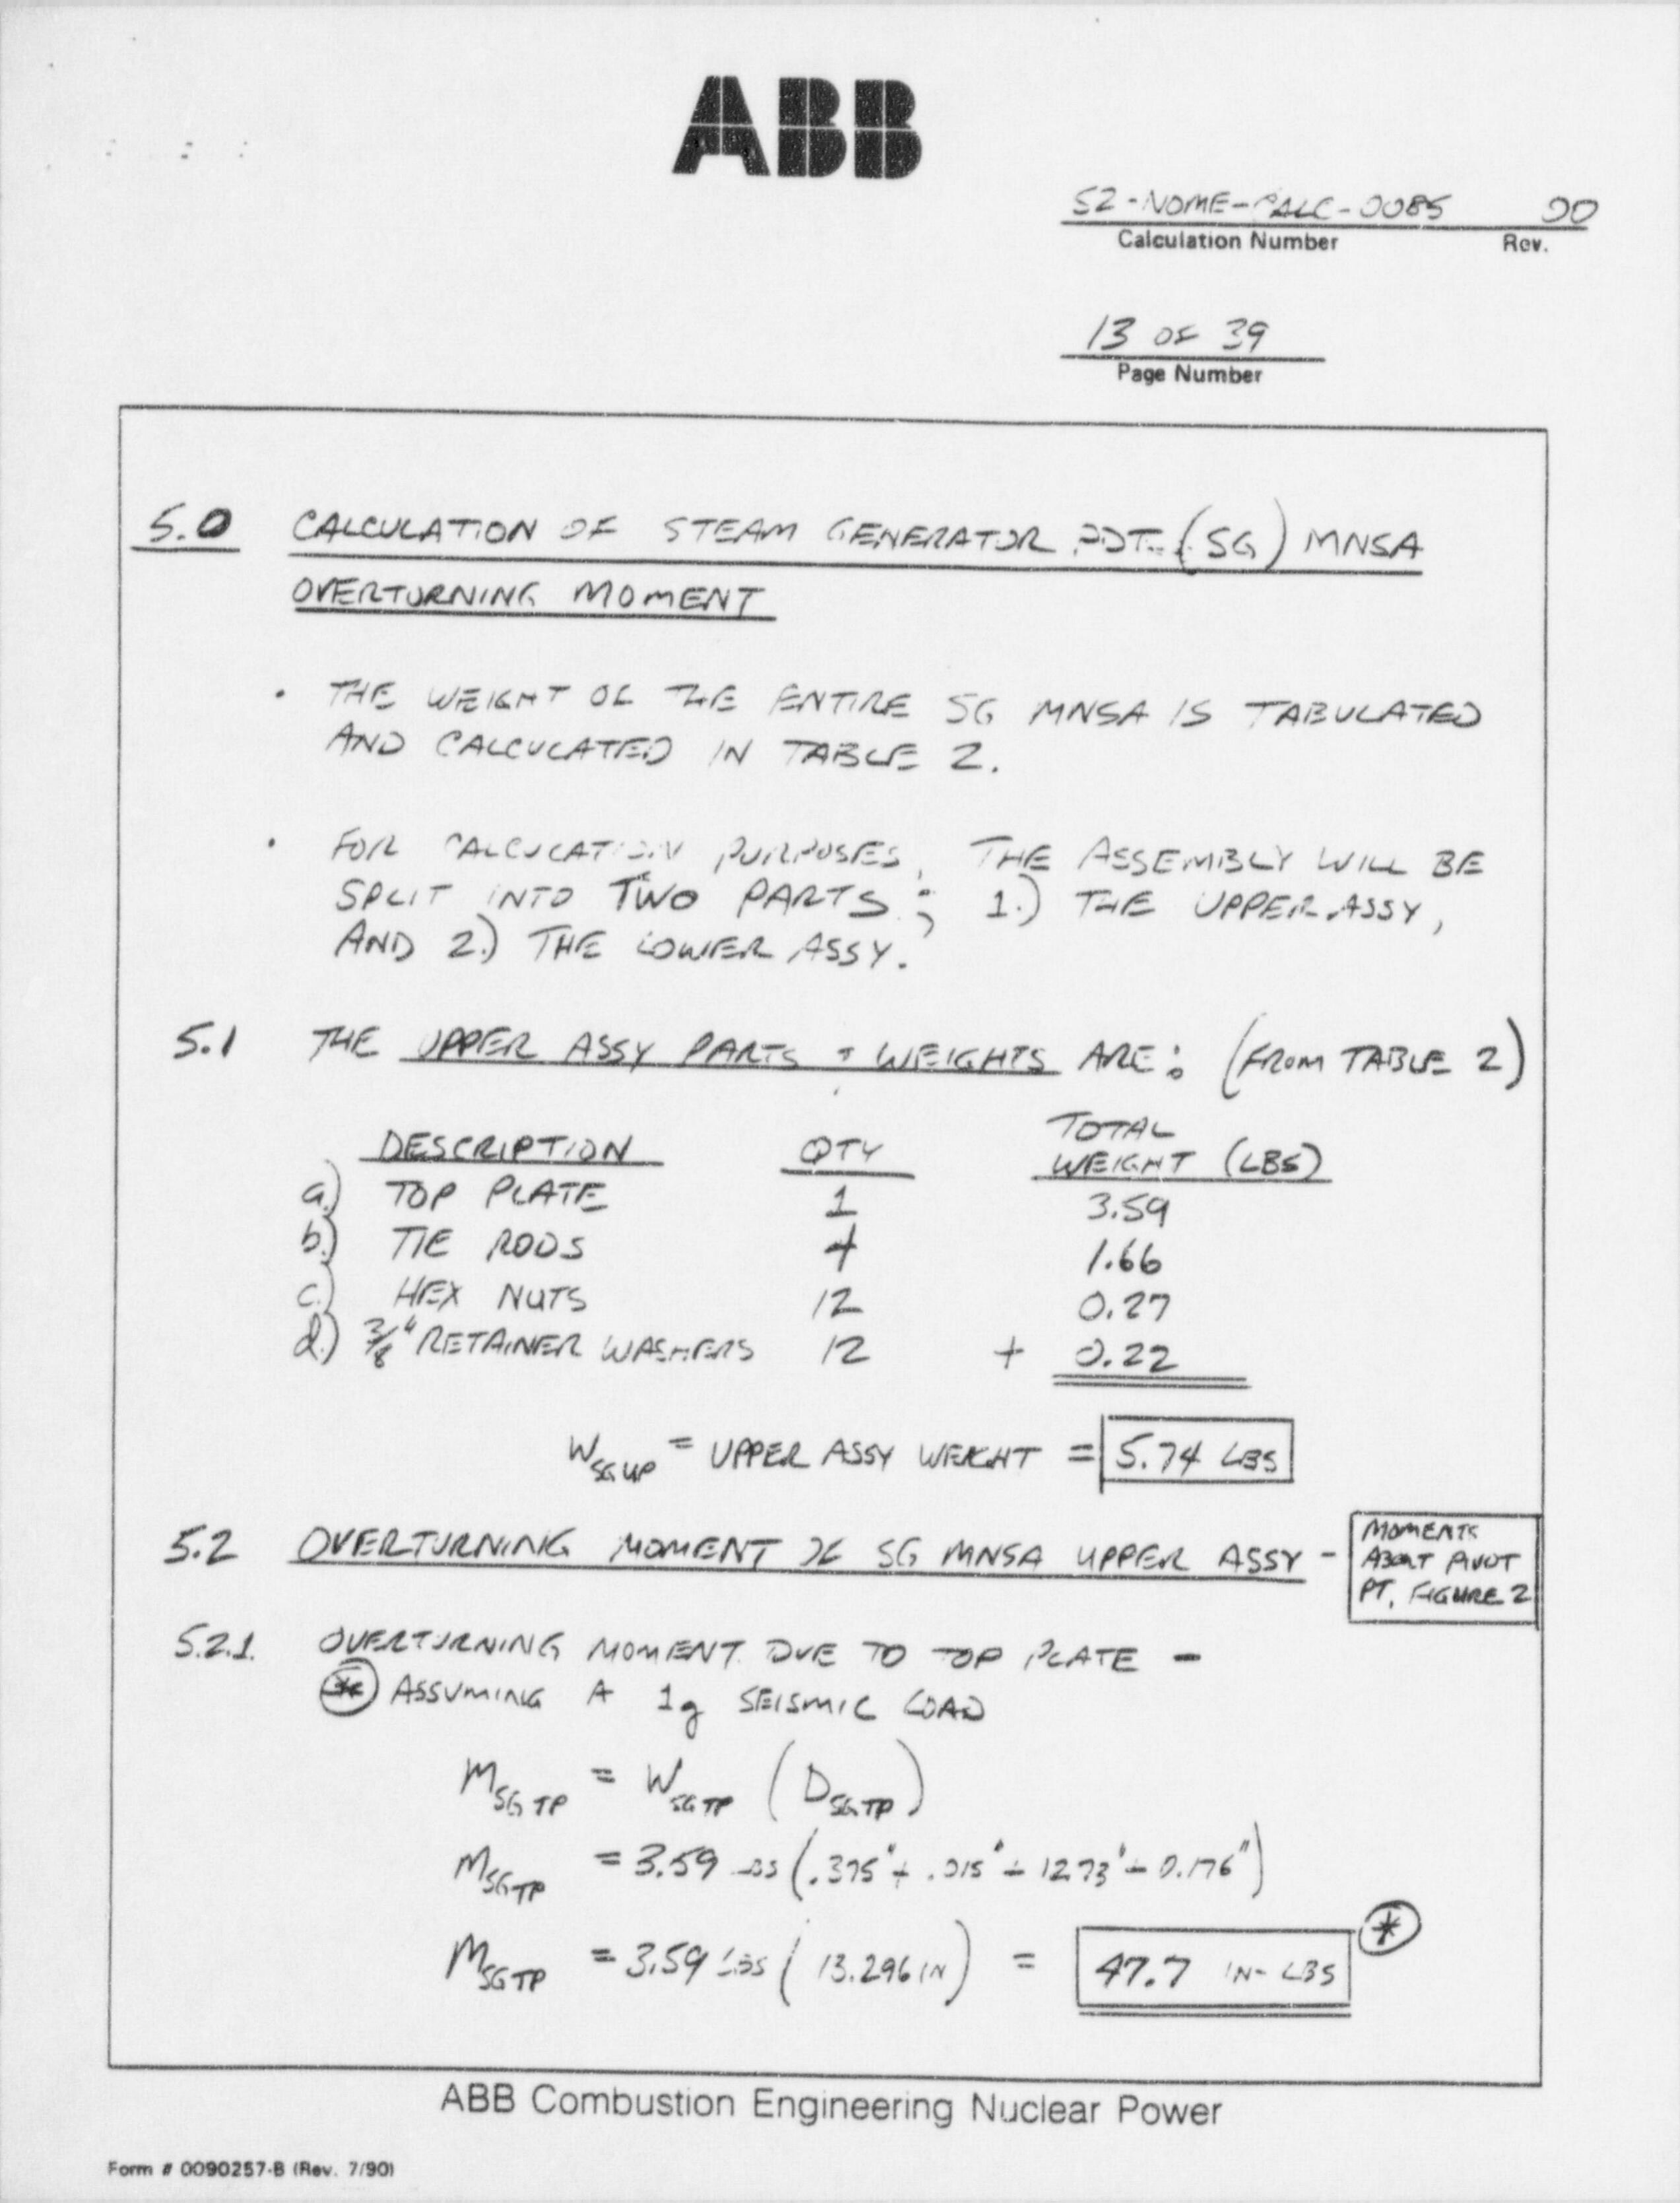 ABB
S2-NOME-CALC-0085 00
Calculation Number Rev.
13 OF 39
Page Number
5.0 CALCULATION OF STEAM GENERATOR PDT (SG) MNSA
OVERTURNING MOMENT
• THE WEIGHT OF THE ENTIRE SG MNSA IS TABULATED
AND CALCULATED IN TABLE 2.
• FOR CALCULATION PURPOSES, THE ASSEMBLY WILL BE
SPLIT INTO TWO PARTS; 1.) THE UPPER ASSY,
AND 2.) THE LOWER ASSY.
5.1 THE UPPER ASSY PARTS + WEIGHTS ARE: (FROM TABLE 2)
TOTAL
DESCRIPTION QTY WEIGHT (LBS)
a.) TOP PLATE 1 3.59
b.) TIE RODS 4 1.66
c.) HEX NUTS 12 0.27
d.) 3/8" RETAINER WASHERS 12 + 0.22
W SGUP = UPPER ASSY WEIGHT = 5.74 LBS
5.2 OVERTURNING MOMENT OF SG MNSA UPPER ASSY -
MOMENTS
ABOUT PIVOT
PT. FIGURE 2
5.2.1. OVERTURNING MOMENT DUE TO TOP PLATE -
* ASSUMING A 1g SEISMIC LOAD
M SGTP = W SGTP (D SGTP)
M SGTP = 3.59 LBS (.375" + .015" + 12.73" + 0.176")
M SGTP = 3.59 LBS (13.296 IN) = 47.7 IN-LBS *
ABB Combustion Engineering Nuclear Power
Form # 0090257-B (Rev. 7/90)